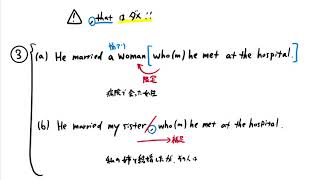 ⚠ , that は ダメ !!
③ (a) He married a woman [ who(m) he met at the hospital. ]
限定
病院で会った女性
(b) He married my sister , who(m) he met at the hospital.
補足
私の姉と結婚したが、